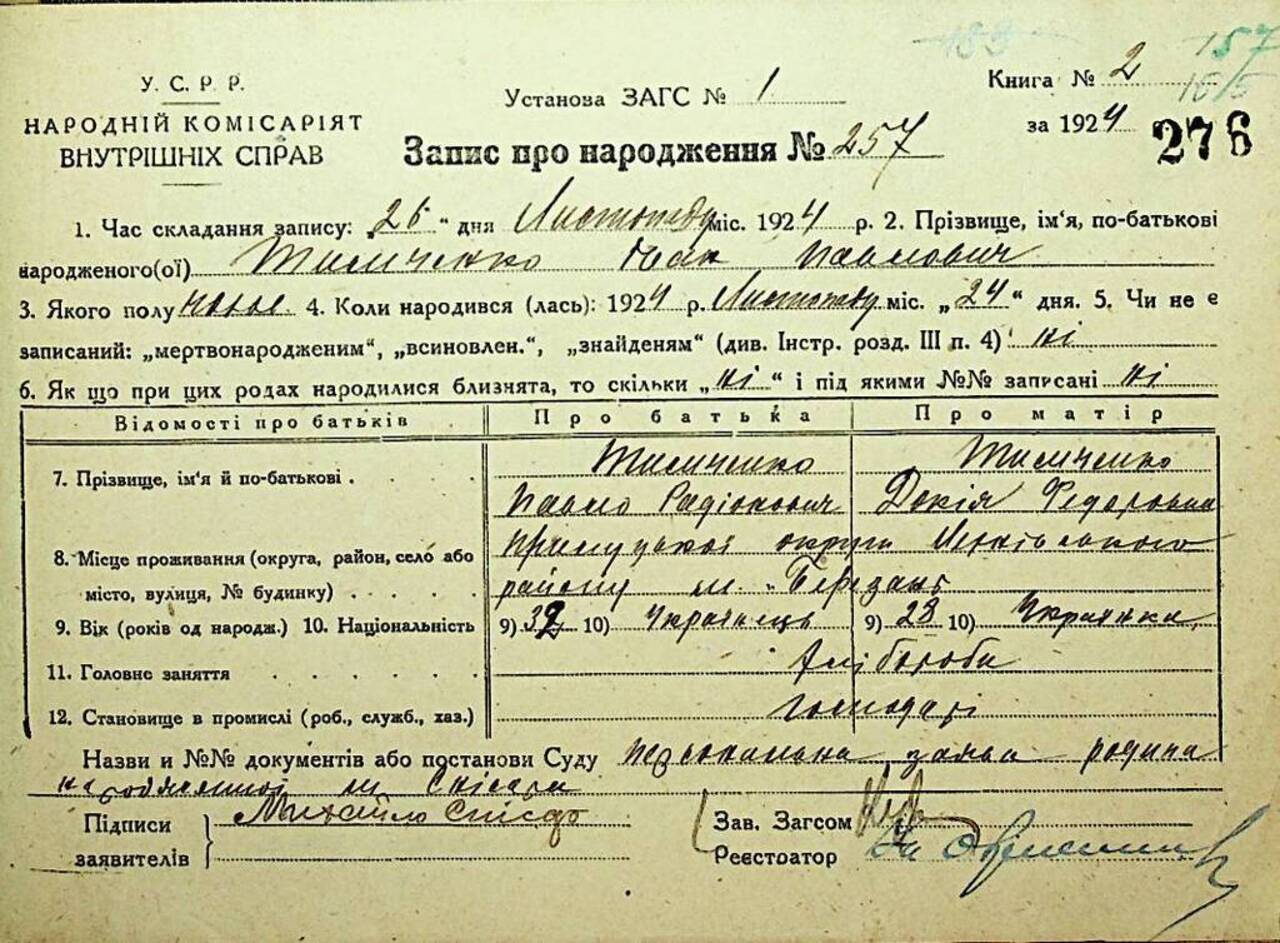 157
У. С. Р Р.
НАРОДНІЙ КОМІСАРІЯТ
ВНУТРІШНІХ СПРАВ
Установа ЗАГС № 1
Книга № 2
за 1924
276
Запис про народження № 257
1. Час складання запису: „26“ дня Листопаду міс. 1924 р. 2. Прізвище, ім‘я, по-батькові
народженого(ої) Тимченко Іван Павлович
3. Якого полу 4. Коли народився (лась): 1924 р. Листопаду міс. „24“ дня. 5. Чи не є
записаний: „мертвонародженим“, „всиновлен.“, „знайденям“ (див. Інстр. розд. III п. 4) ні
6. Як що при цих родах народилися близнята, то скільки „ні“ і під якими №№ записані ні
Відомості про батьків Про батька Про матір
7. Прізвище, ім‘я й по-батькові . Тимченко Тимченко
Павло Радіонович Докія Федоровна
8. Місце проживання (округа, район, село або Прилуцької округи
місто, вулиця, № будинку) . . . . . району м. Березань
9. Вік (років од народж.) 10. Національність 9) 32 10) Українець 9) 28 10) Українка
11. Головне заняття . . . . . . Хлібороби
12. Становище в промислі (роб., служб., хаз.) господарі
Назви и №№ документів або постанови Суду персональна заява родича
Підписи Михайло
заявителів
Зав. Загсом
Реєстоатор